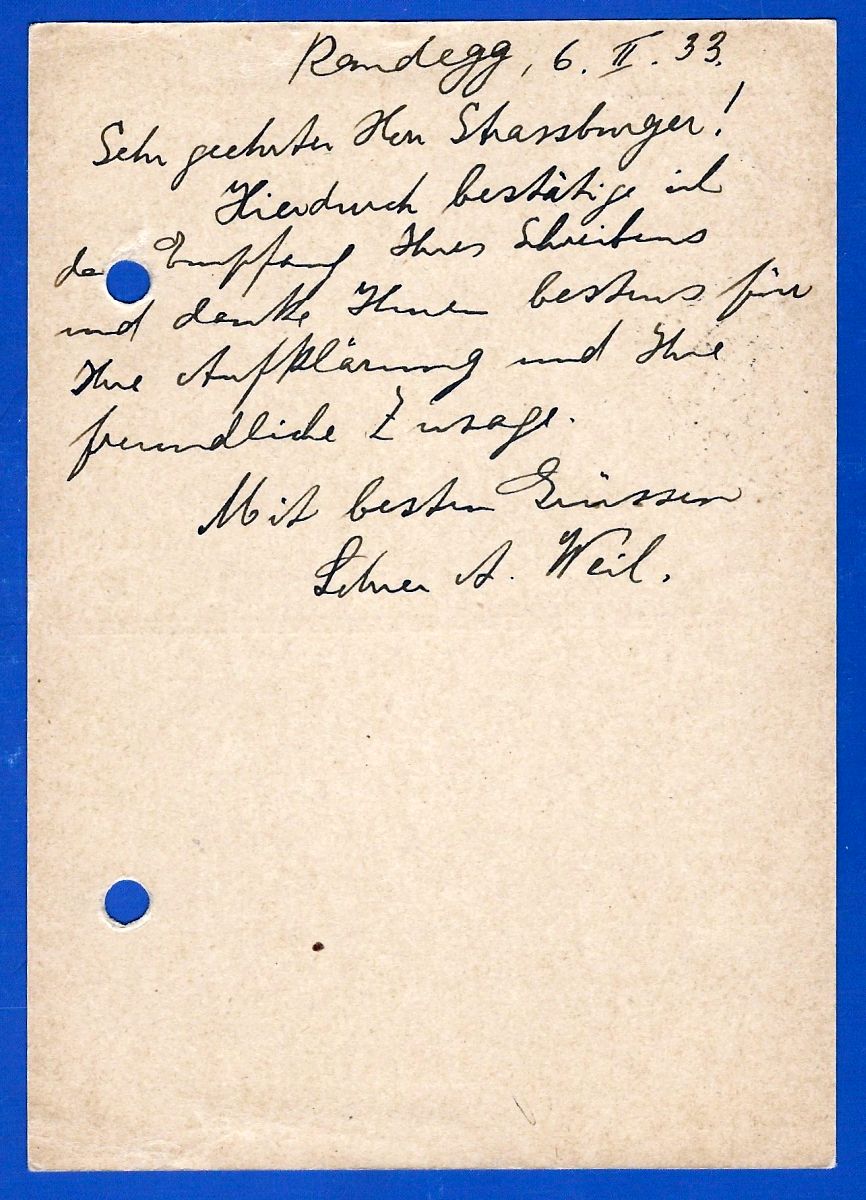 Randegg, 6. II. 33.
Sehr geehrter Herr Strassburger!
Hierdurch bestätige ich
de Empfang Ihres Schreibens
und danke Ihnen bestens für
Ihre Aufklärung und Ihre
freundliche Zusage.
Mit besten Grüssen
Lehrer A. Weil.